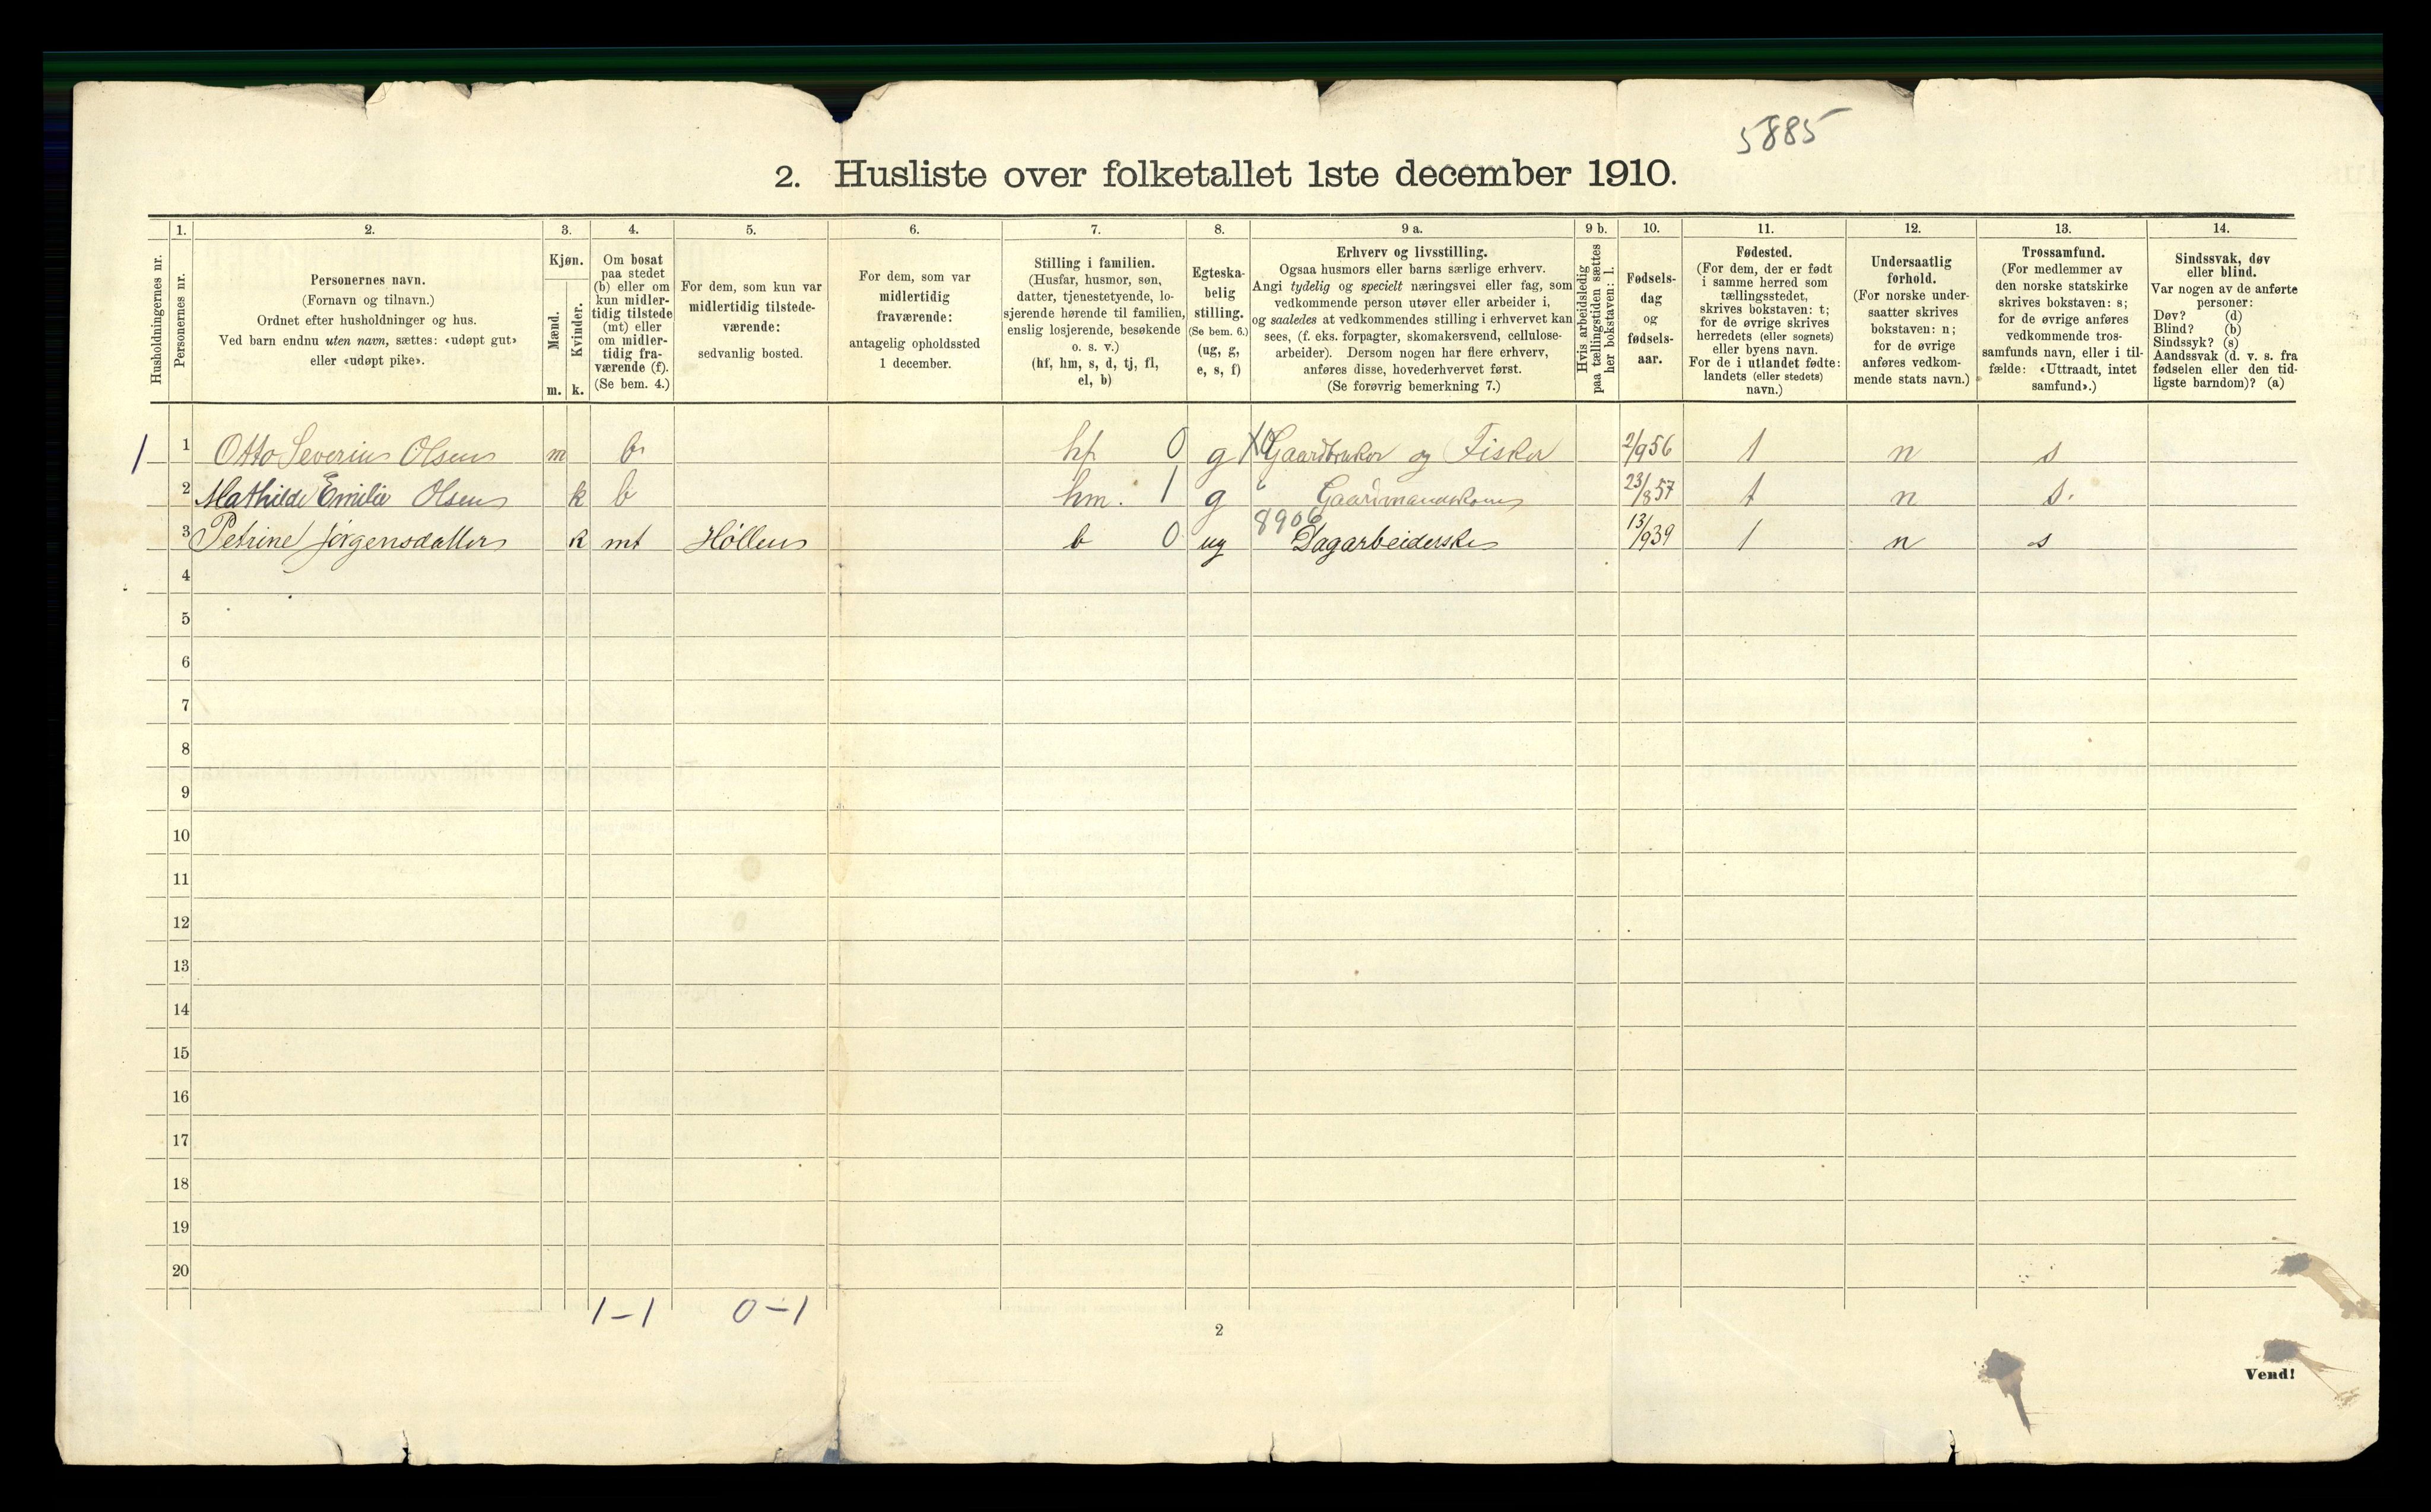 5885
2. Husliste over folketallet 1ste december 1910.
Husholdningernes nr.
1.
Personernes nr.
2.
Personernes navn.
(Fornavn og tilnavn.)
Ordnet efter husholdninger og hus.
Ved barn endnu uten navn, sættes: «udøpt gut»
eller «udøpt pike».
3.
Kjøn.
Mænd.
Kvinder.
m. k.
4.
Om bosat
paa stedet
(b) eller om
kun midler-
tidig tilstede
(mt) eller
om midler-
tidig fra-
værende (f).
(Se bem. 4.)
5.
For dem, som kun var
midlertidig tilstede-
værende:
sedvanlig bosted.
6.
For dem, som var
midlertidig
fraværende:
antagelig opholdssted
1 december.
7.
Stilling i familien.
(Husfar, husmor, søn,
datter, tjenestetyende, lo-
sjerende hørende til familien,
enslig losjerende, besøkende
o. s. v.)
(hf, hm, s, d, tj, fl,
el, b)
8.
Egteska-
belig
stilling.
(Se bem. 6.)
(ug, g,
e, s, f)
9 a.
Erhverv og livsstilling.
Ogsaa husmors eller barns særlige erhverv.
Angi tydelig og specielt næringsvei eller fag, som
vedkommende person utøver eller arbeider i,
og saaledes at vedkommendes stilling i erhvervet kan
sees, (f. eks. forpagter, skomakersvend, cellulose-
arbeider). Dersom nogen har flere erhverv,
anføres disse, hovederhvervet først.
(Se forøvrig bemerkning 7.)
9 b.
Hvis arbeidsledig
paa tællingstiden sættes
her bokstaven: l.
10.
Fødsels-
dag
og
fødsels-
aar.
11.
Fødested.
(For dem, der er født
i samme herred som
tællingsstedet,
skrives bokstaven: t;
for de øvrige skrives
herredets (eller sognets)
eller byens navn.
For de i utlandet fødte:
landets (eller stedets)
navn.)
12.
Undersaatlig
forhold.
(For norske under-
saatter skrives
bokstaven: n;
for de øvrige
anføres vedkom-
mende stats navn.)
13.
Trossamfund.
(For medlemmer av
den norske statskirke
skrives bokstaven: s;
for de øvrige anføres
vedkommende tros-
samfunds navn, eller i til-
fælde: «Uttraadt, intet
samfund».)
14.
Sindssvak, døv
eller blind.
Var nogen av de anførte
personer:
Døv? (d)
Blind? (b)
Sindssyk? (s)
Aandssvak (d. v. s. fra
fødselen eller den tid-
ligste barndom)? (a)
1 1 Otto Severin Olsen m b hf 0 g Gaardbruker og Fisker 2/9 56 t n s
2 Mathilde Emilie Olsen k b hm. 1 g Gaardmandskone 23/8 57 t n s.
8906
3 Petrine Jørgensdatter k mt Höllen b 0 ug Dagarbeiderske 13/9 39 t n s
4
5
6
7
8
9
10
11
12
13
14
15
16
17
18
19
20
1-1 0-1
2
Vend!